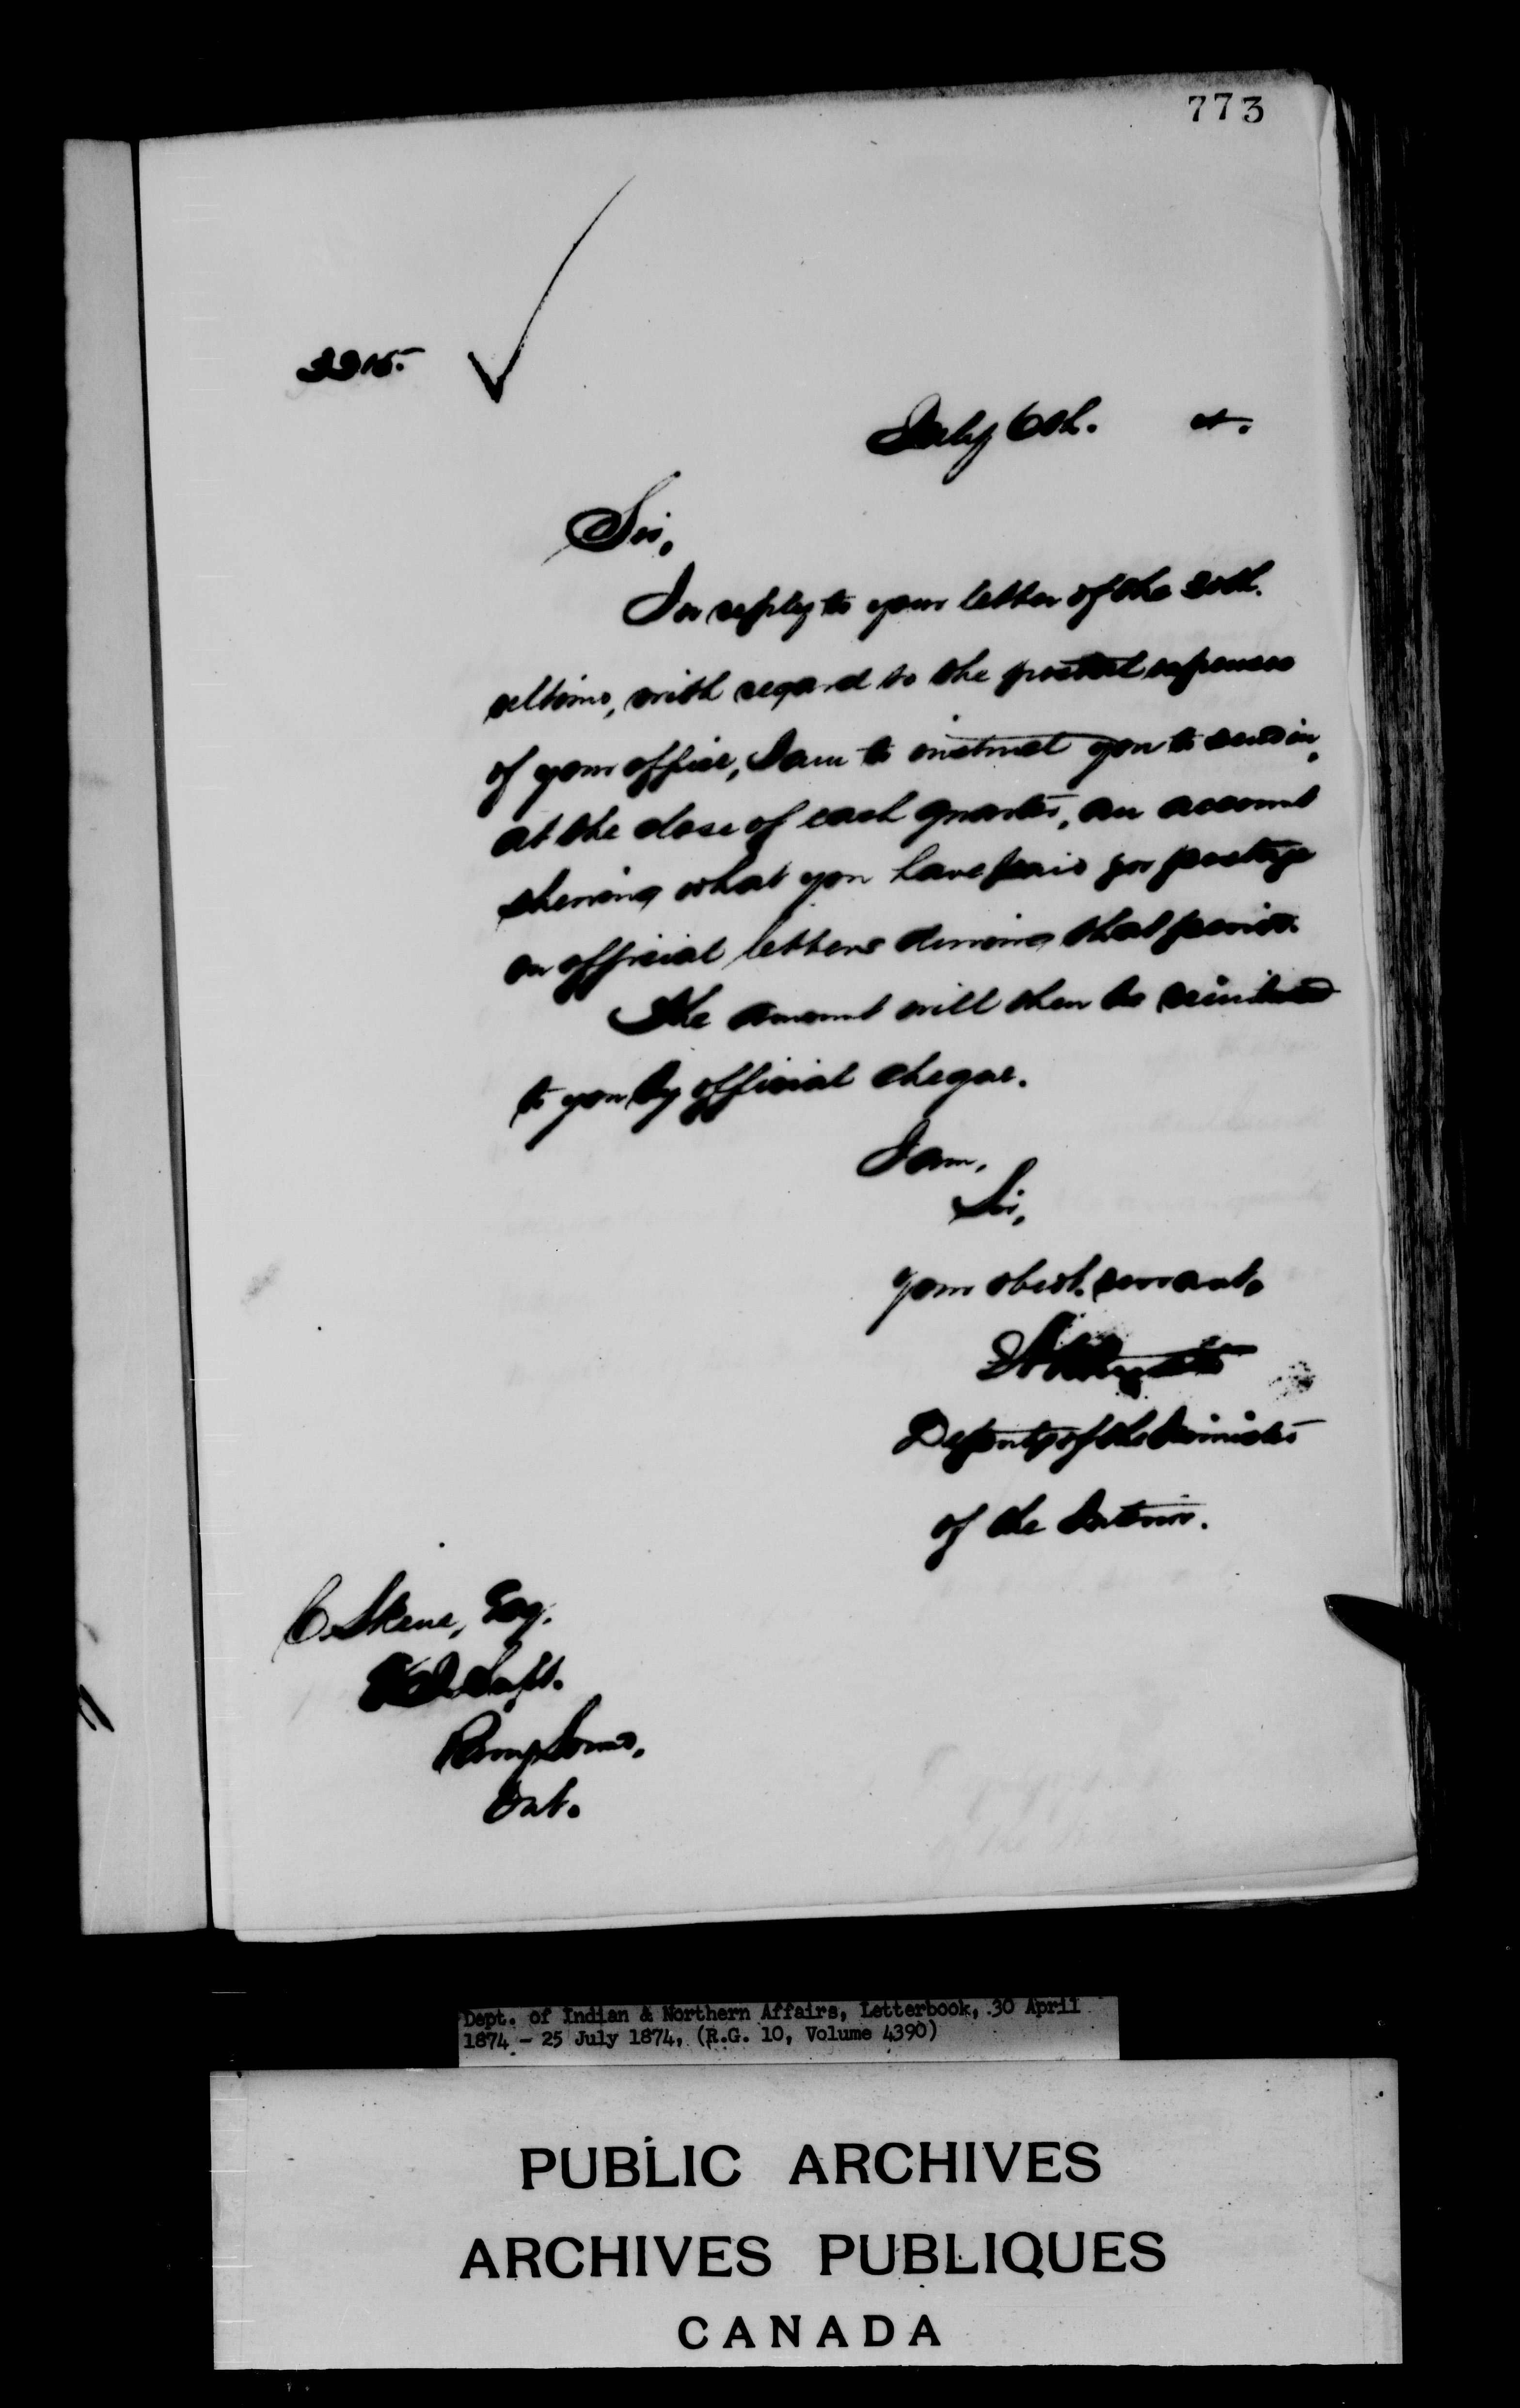 773
3315.
July 6th. 4.
Sir,
In reply to your letter of the 30th.
ultimo, with regard to the postal expenses
of your office, I am to instruct you to send in,
at the close of each quarter, an account
shewing what you have paid for postage
on official letters during that period.
The amount will then be reimbursed
to you by official cheque.
I am,
Sir,
Your obedt. servant,
Deputy of the Minister
of the Interior.
C. Skene, Esq.
Supt.
Ont.
Dept. of Indian & Northern Affairs, Letterbook, 30 April
1874 - 25 July 1874, (R.G. 10, Volume 4390)
PUBLIC ARCHIVES
ARCHIVES PUBLIQUES
CANADA